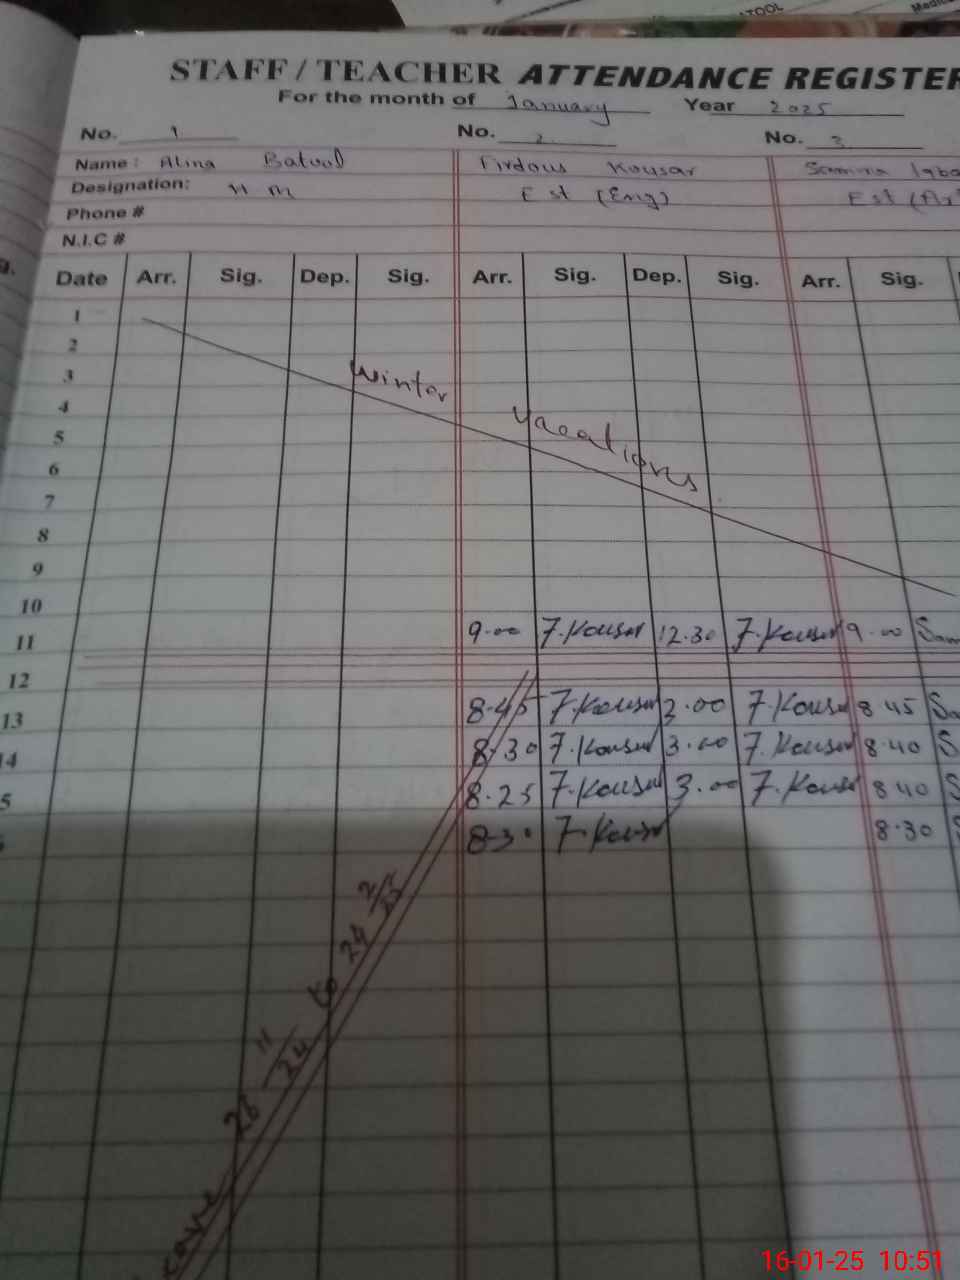 ATOOL
STAFF / TEACHER ATTENDANCE REGISTER
For the month of January Year 2025
No. 1 No. 2 No. 3
Name: Alina Batool Firdous Kousar Samina Iqba
Designation: H M Est (Eng) Est (Ar
Phone #
N.I.C #
Date Arr. Sig. Dep. Sig. Arr. Sig. Dep. Sig. Arr. Sig.
1
2
3 Winter
4 Vacations
5
6
7
8
9
10
11 9.00 F.Kousar 12.30 F.Kousar 9.00 Sam
12
13 8.45 F.Kousar 3.00 F.Kousar 8 45 Sa
14 8.30 F.Kousar 3.00 F.Kousar 8.40 S
5 8.25 F.Kousar 3.00 F.Kousar 8 40 S
8.30 F.Kousar 8.30 S
11/24 to 24 2/25
16-01-25 10:51